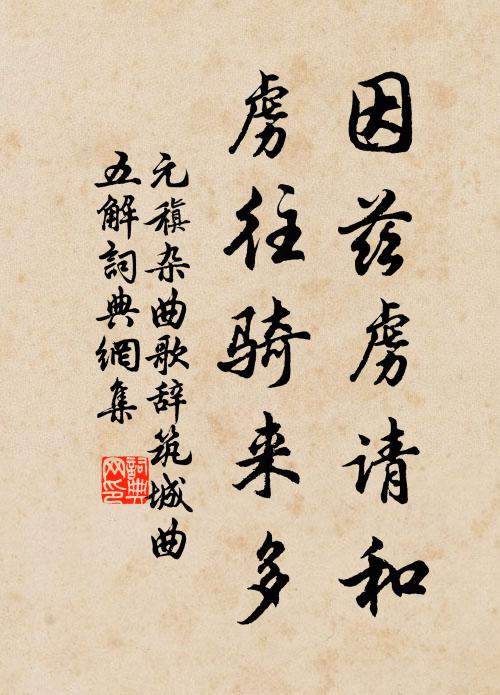 因兹虏请和
虏往骑来多
元稹杂曲歌辞筑城曲
五解詞典網集
詞典
网印